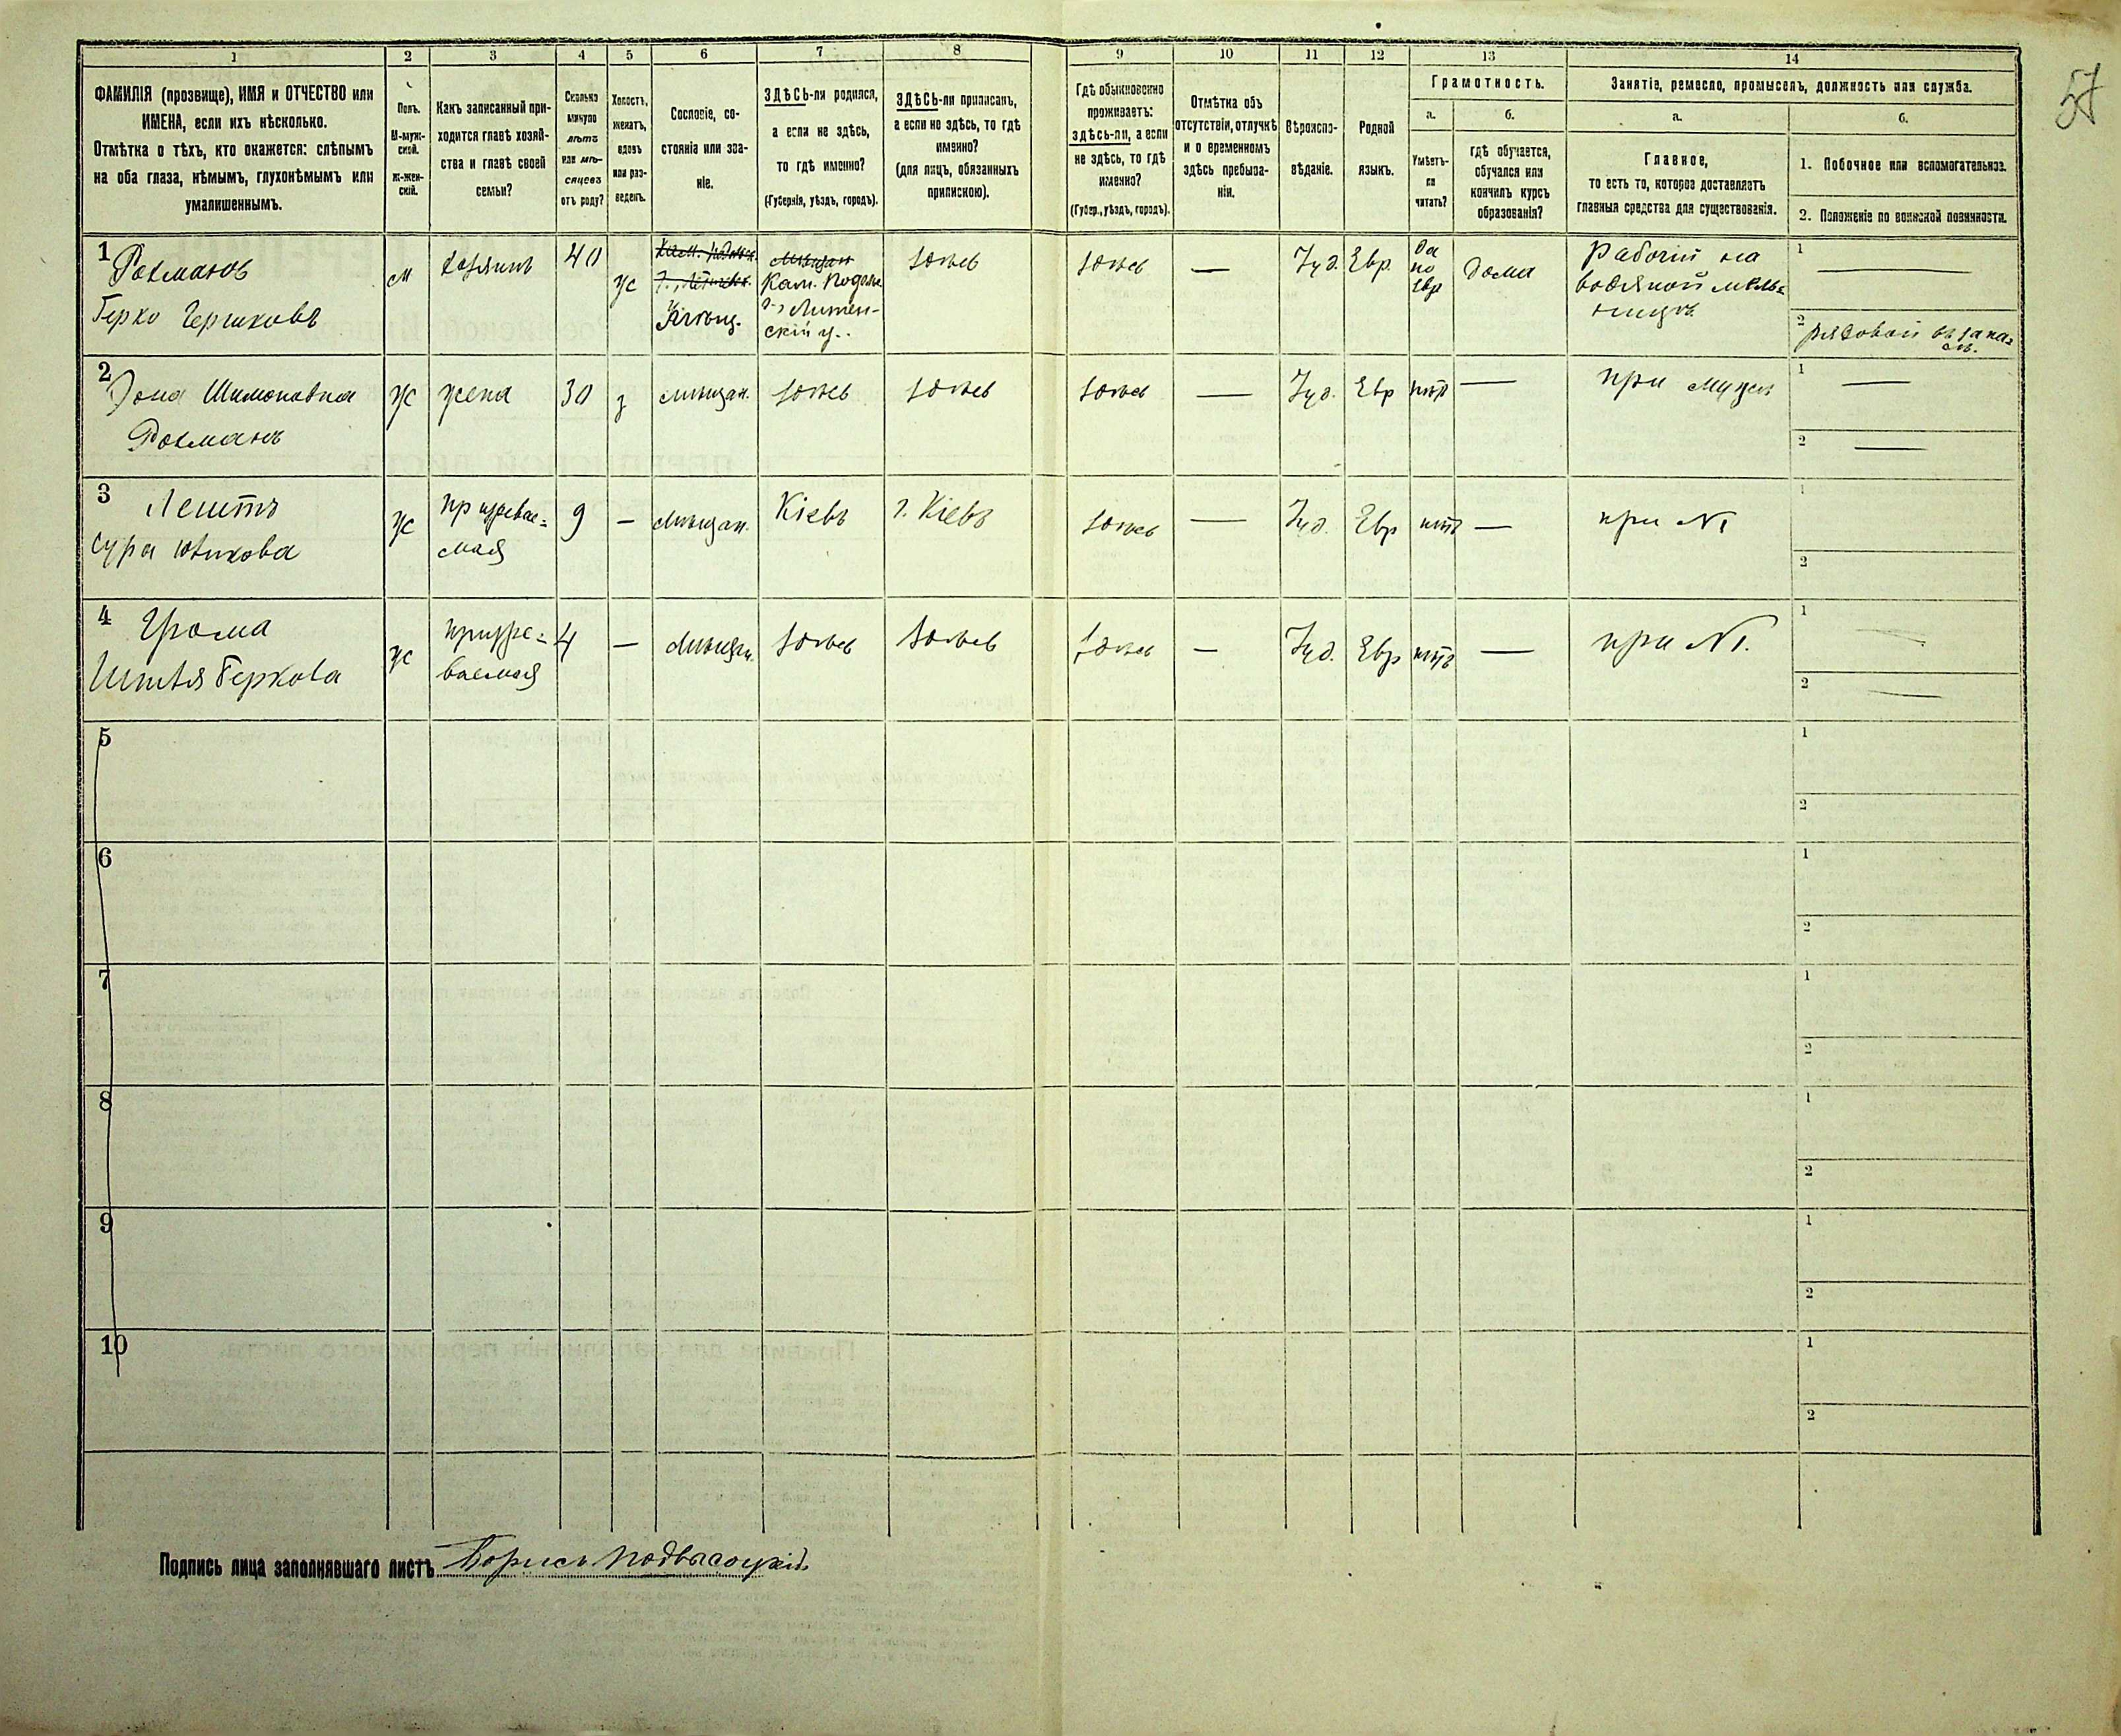 57
1 2 3 4 5 6 7 8 9 10 11 12 13 14
ФАМИЛІЯ (прозвище), ИМЯ и ОТЧЕСТВО или
ИМЕНА, если ихъ нѣсколько.
Отмѣтка о тѣхъ, кто окажется: слѣпымъ
на оба глаза, нѣмымъ, глухонѣмымъ или
умалишеннымъ.
Полъ.
М-муж-
ской.
Ж-жен-
скій.
Какъ записанный при-
ходится главѣ хозяй-
ства и главѣ своей
семьи?
Сколько
минуло
лѣтъ
или мѣ-
сяцевъ
отъ роду?
Холостъ,
женатъ,
вдовъ
или раз-
веденъ.
Сословіе, со-
стояніе или зва-
ніе.
ЗДѢСЬ-ли родился,
а если не здѣсь,
то гдѣ именно?
(Губернія, уѣздъ, городъ).
ЗДѢСЬ-ли приписанъ,
а если не здѣсь, то гдѣ
именно?
(для лицъ, обязанныхъ
припискою).
Гдѣ обыкновенно
проживаетъ:
здѣсь-ли, а если
не здѣсь, то гдѣ
именно?
(Губер., уѣздъ, городъ).
Отмѣтка объ
отсутствіи, отлучкѣ
и о временномъ
здѣсь пребыва-
ніи.
Вѣроиспо-
вѣданіе.
Родной
языкъ.
Грамотность.
а.
Умѣетъ-
ли
читать?
б.
гдѣ обучается,
обучался или
кончилъ курсъ
образованія?
Занятіе, ремесло, промыселъ, должность или служба.
а.
Главное,
то есть то, которое доставляетъ
главныя средства для существованія.
б.
1. Побочное или вспомогательное.
2. Положеніе по воинской повинности.
1
Рохманъ
Герко Гершковъ
м
хозяинъ
40
ж
Мѣщан
Кам. Подол.
г., Литин-
скій у..
здѣсь
здѣсь
—
Іуд.
Евр.
да
по
Евр
дома
Рабочій на
водяной мель=
ницѣ
1 —
2 рядовой въ запа=
сѣ.
2
Шимоновна
Рохманъ
ж
жена
30
з
мѣщан.
здѣсь
здѣсь
здѣсь
—
Іуд.
Евр
нѣтъ
—
при мужѣ
1 —
2 —
3
Сура
ж
9
—
мѣщан.
Кіевъ
г. Кіевъ
здѣсь
—
Іуд.
Евр
нѣтъ
—
при №1
1
2
4
Геркова
ж
4
—
мѣщан.
здѣсь
здѣсь
здѣсь
—
Іуд.
Евр
нѣтъ
—
при №1.
1 —
2 —
5
1
2
6
1
2
7
1
2
8
1
2
9
1
2
10
1
2
Подпись лица заполнявшаго листъ Борисъ Подвысоцкій